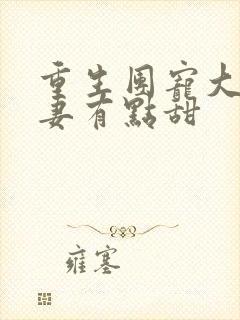 重生團寵大
妻有點甜
雍塞